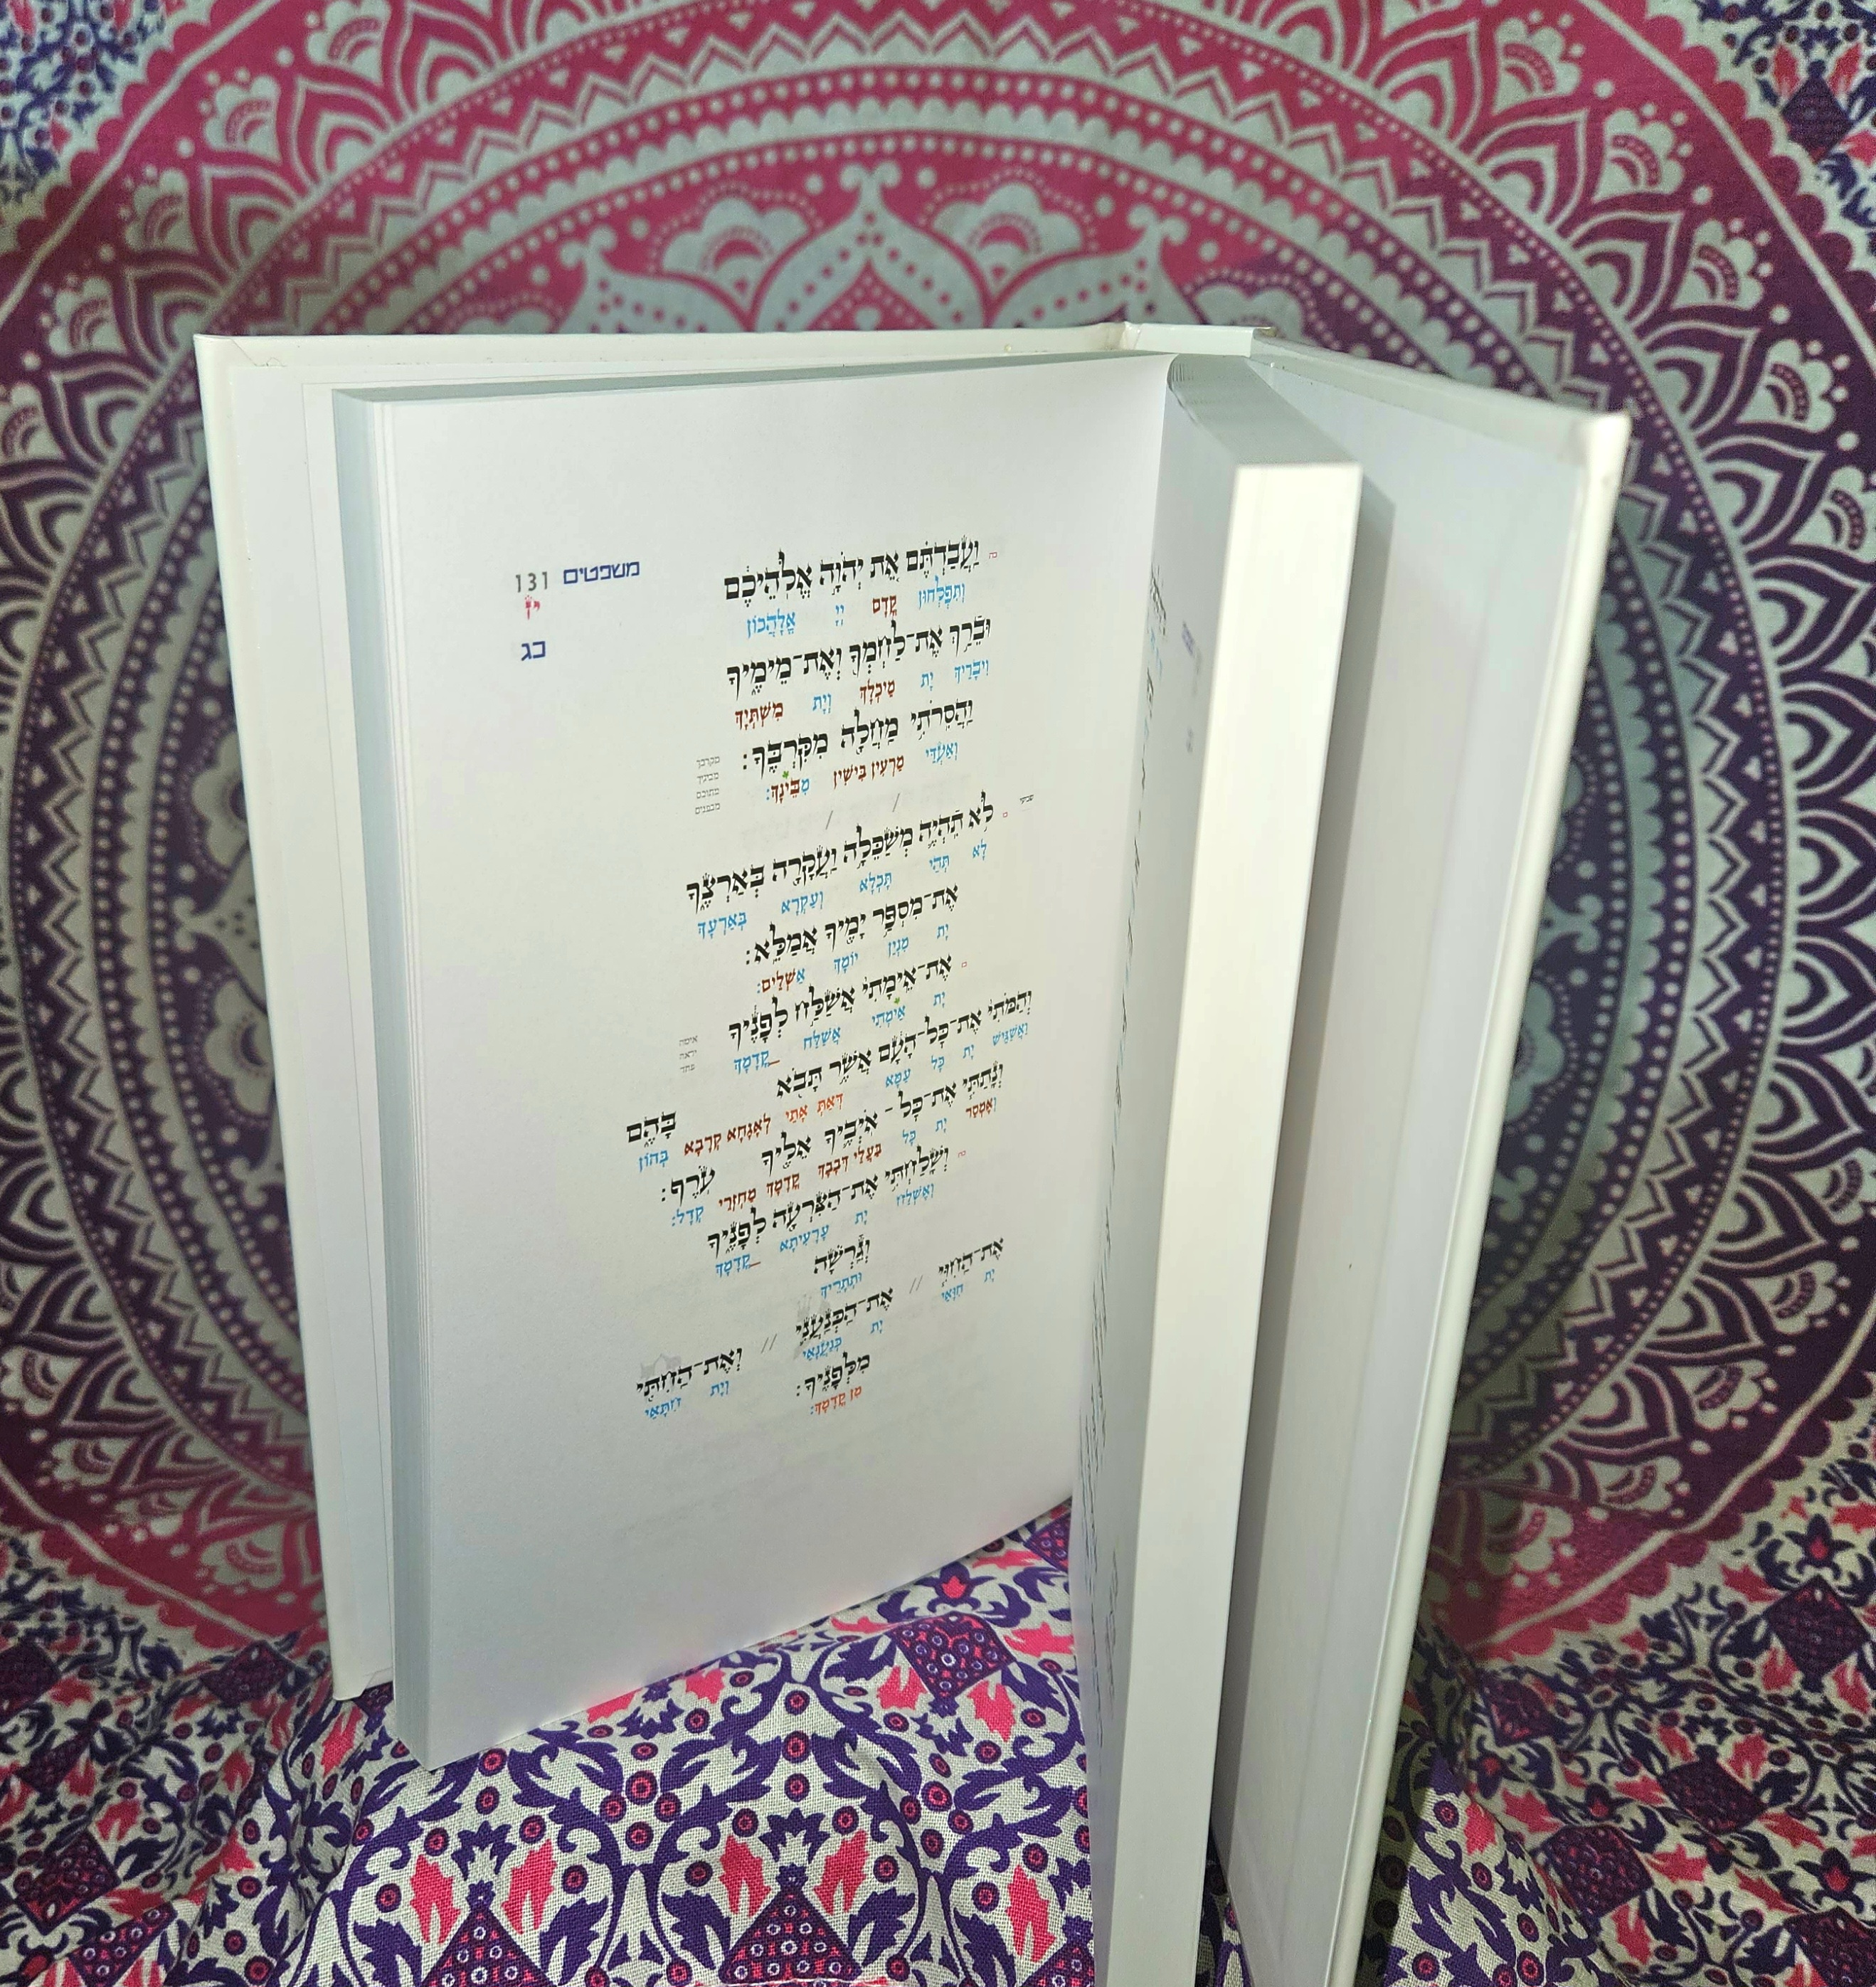 משפטים 131
יז
כג
וַעֲבַדְתֶּם אֵת יְהוָה אֱלֹהֵיכֶם
וְתִפְלְחוּן קֳדָם יְיָ אֱלָהֲכוֹן
וּבֵרַךְ אֶת־לַחְמְךָ וְאֶת־מֵימֶיךָ
וִיבָרֵיךְ יָת מֵיכְלָךְ וְיָת מִשְׁתְּיָךְ
וַהֲסִרֹתִי מַחֲלָה מִקִּרְבֶּךָ:
וְאַעְדֵּי מַרְעִין בִּישִׁין מִבֵּינָךְ:
מקרבך
מבינך
מתוככם
מבפנים
לֹא תִהְיֶה מְשַׁכֵּלָה וַעֲקָרָה בְּאַרְצֶךָ
לָא תְּהֵי תָּכְלָא וְעַקְרָא בְּאַרְעָךְ
אֶת־מִסְפַּר יָמֶיךָ אֲמַלֵּא:
יָת מִנְיַן יוֹמָךְ אַשְׁלֵים:
אֶת־אֵימָתִי אֲשַׁלַּח לְפָנֶיךָ
יָת אֵימְתִי אֲשַׁלַּח קֳדָמָךְ
אימה
יראה
פחד
וְהַמֹּתִי אֶת־כָּל־הָעָם אֲשֶׁר תָּבֹא בָּהֶם
וַאֲשַׁגֵּישׁ יָת כָּל עַמָּא דְּאַתְּ אָתֵי לְאַגָּחָא קְרָבָא בְּהוֹן
וְנָתַתִּי אֶת־כָּל־אֹיְבֶיךָ אֵלֶיךָ עֹרֶף:
וְאֶמְסַר יָת כָּל בַּעֲלֵי דְּבָבָךְ קֳדָמָךְ מַחְזְרֵי קְדָל:
וְשָׁלַחְתִּי אֶת־הַצִּרְעָה לְפָנֶיךָ
וְאֶשְׁלַח יָת עָרָעִיתָא קֳדָמָךְ
וְגֵרְשָׁה
וּתְתָרֵיךְ
אֶת־הַחִוִּי // אֶת־הַכְּנַעֲנִי // וְאֶת־הַחִתִּי
יָת חִוָּאֵי יָת כְּנַעֲנָאֵי וְיָת חִתָּאֵי
מִלְּפָנֶיךָ:
מִן קֳדָמָךְ: